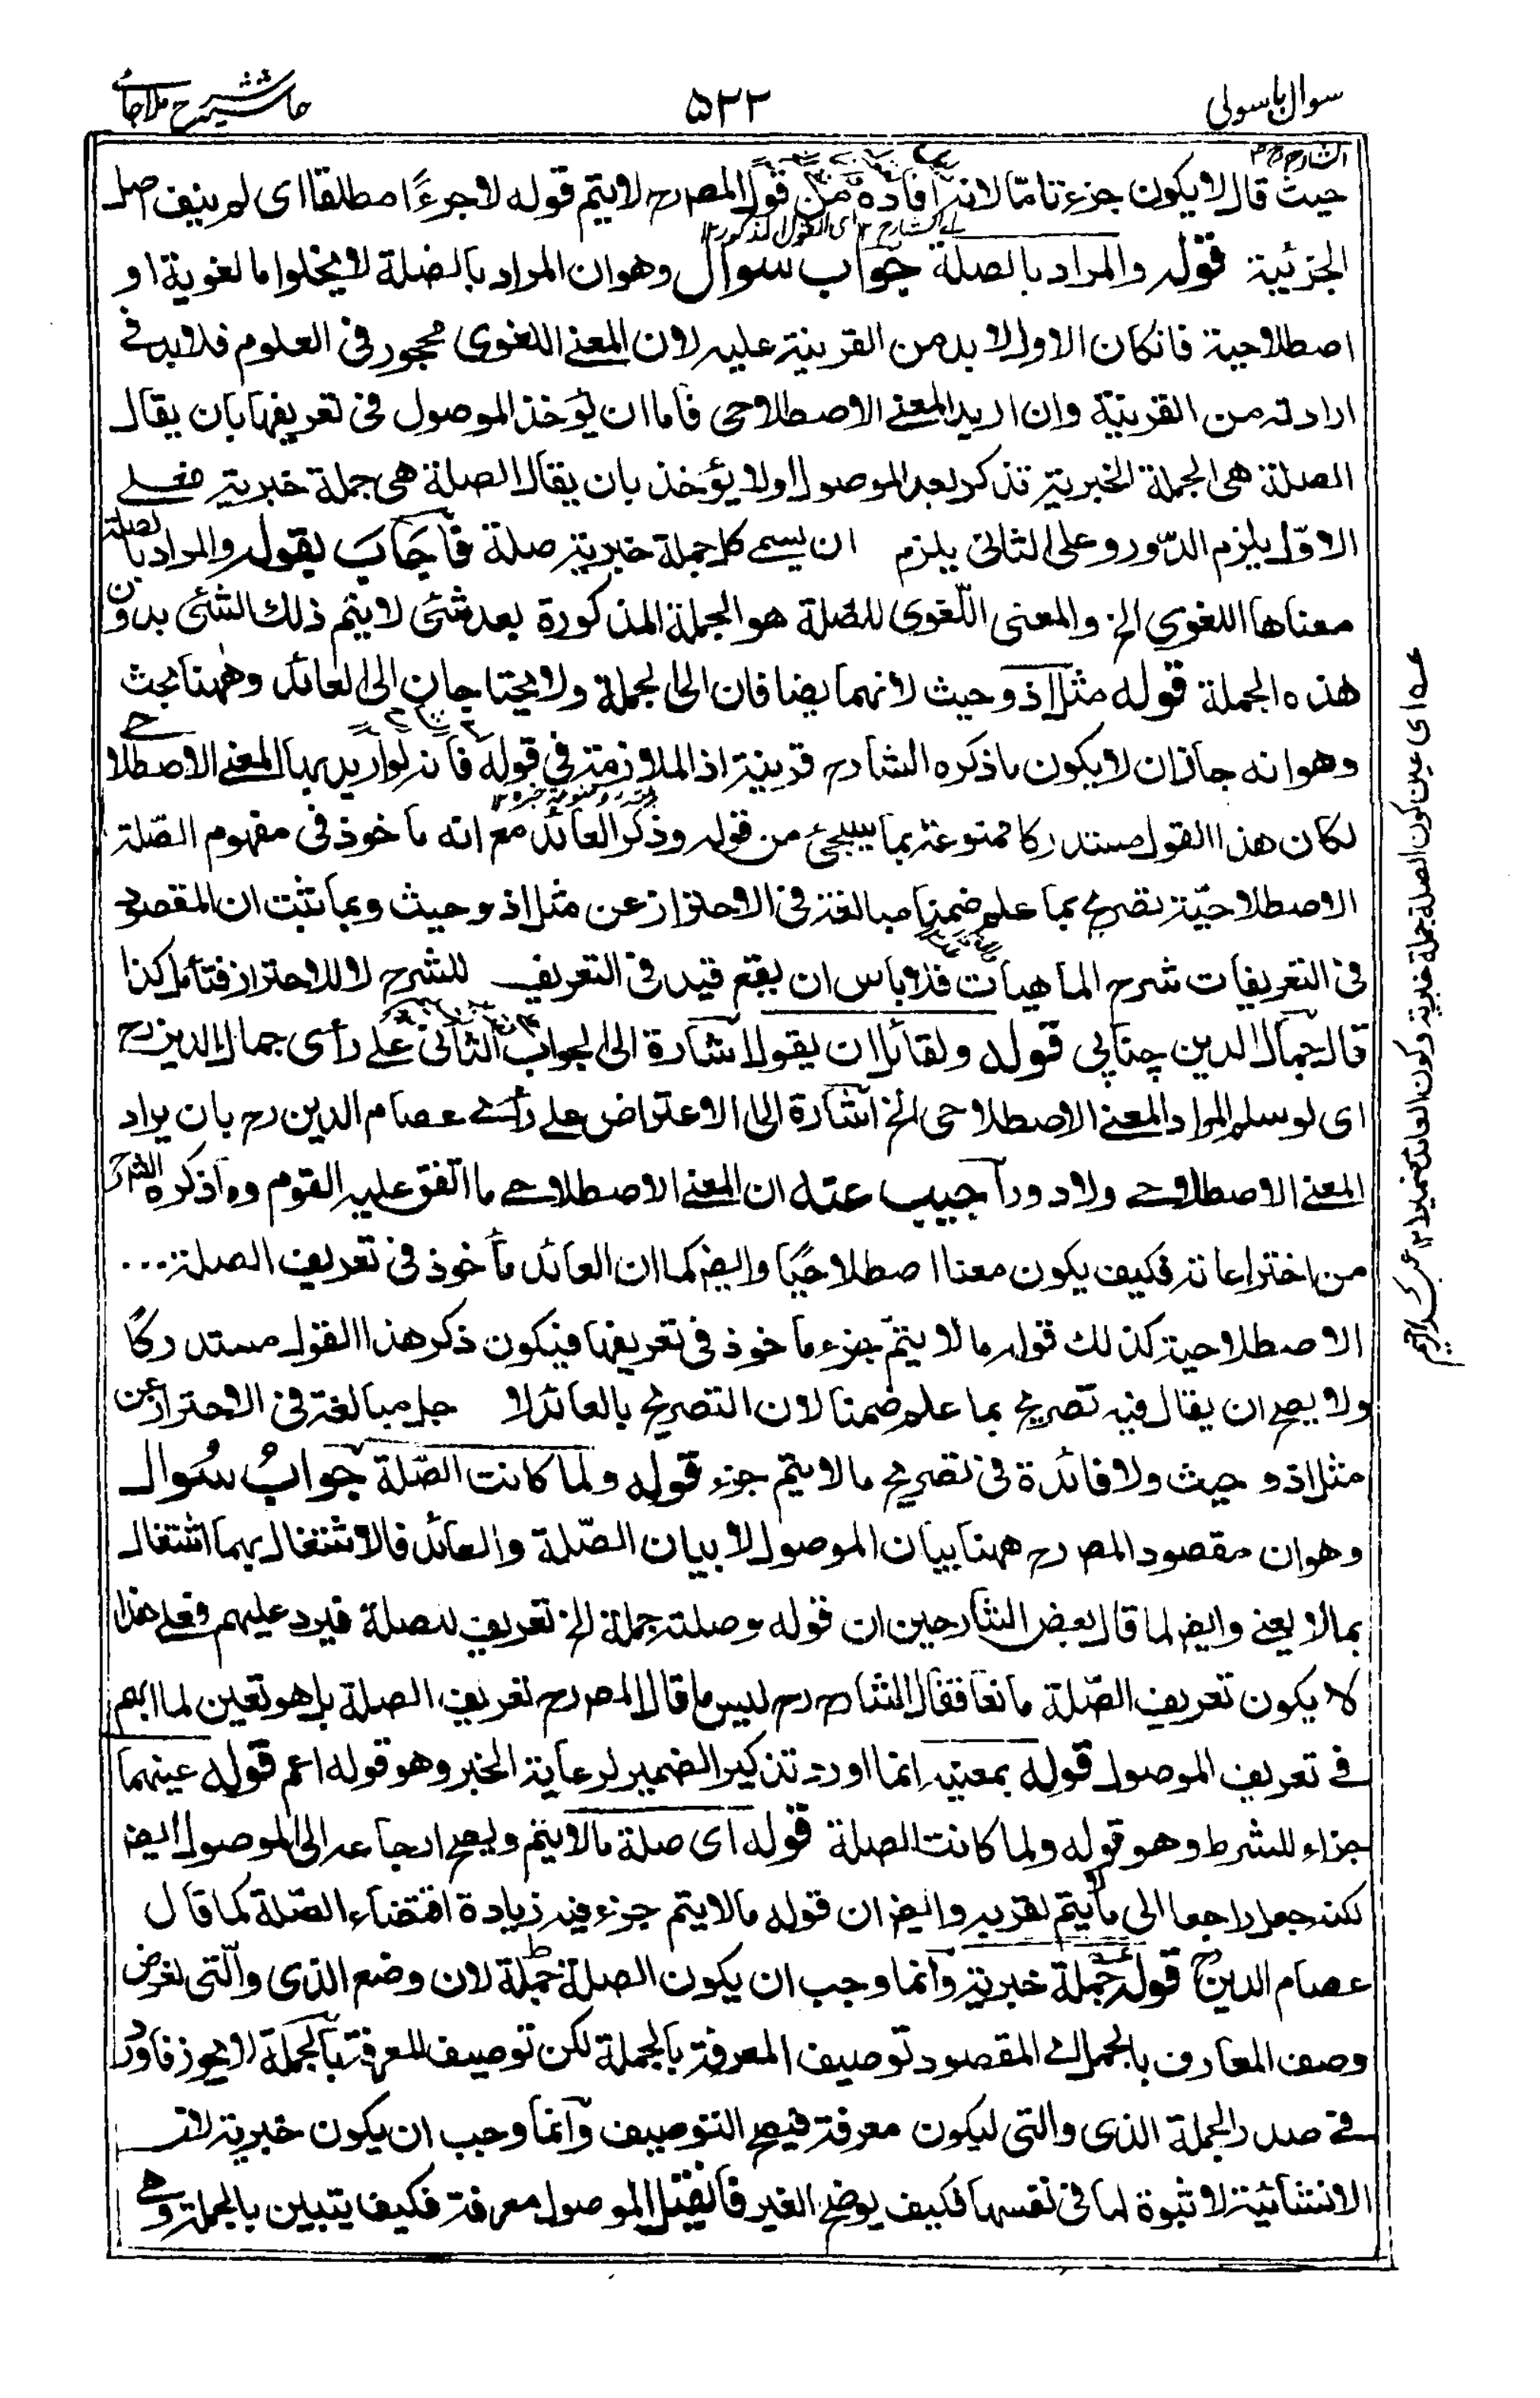 سوال باسولی
۵۲۲
حاشیه شرح ملاجامی
حیث قال لا یکون جزء تامّا لانه افاده من قول المصرح لا یتم قوله لا جزءًا مطلقا ای لم ینف اصل
الجزئیة قوله والمراد بالصلة جواب سوال وهو ان المراد بالصلة لا یخلوا ما لغویة او
اصطلاحیة فانکان الاول لا بد من القرینة علیه لان المعنے اللغوی مهجور فی العلوم فلا بد فے
ارادته من القرینة وان ارید المعنے الاصطلاحی فاما ان یؤخذ الموصول فی تعریفها بان یقال
الصلة هی الجملة الخبریة تذکر بعد الموصول اولا یؤخذ بان یقال الصلة هی جملة خبریة فعلے
الاوّل یلزم الدّور وعلی الثانی یلزم ان یسمے کل جملة خبریة صلة فاجاب بقوله والمراد بالصلة
معناها اللغوی الخ والمعنی اللّغوی للصّلة هو الجملة المذکورة بعد شئ لا یتم ذلك الشئ بدون
هذه الجملة قوله مثل اذ وحیث لانهما یضافان الی الجملة ولا یحتاجان الی العائد وههنا بحث
وهو انه جاز ان لا یکون ماذکره الشارح قرینة اذ الملازمة فی قوله فانه لو ارید بها المعنے الاصطلاحے
لکان هذا القول مستدرکا ممنوعة بما سیجئ من قوله وذکر العائد مع انه ماخوذ فی مفهوم الصّلة
الاصطلاحیّة تصریح بما علم ضمنا مبالغة فی الاحتراز عن مثل اذ وحیث وبما تثبت ان المقصود
فی التعریفات شرح الماهیات فلا باس ان یقع قید فی التعریف للشرح لا للاحتراز فتأمل کذا
قال جمال الدین چناپی قوله ولقائل ان یقول اشارة الی الجواب الثانی علے رأی جمال الدین رح
ای لو سلم المراد المعنے الاصطلاحی الخ اشارة الی الاعتراض علے رأے عصام الدین رح بان یراد
المعنے الاصطلاحے ولا دور اجیب عنه ان المعنے الاصطلاحے ما اتفق علیه القوم وماذکره الشارح
من اختراعاته فکیف یکون معنا اصطلاحیًا وایضا کما ان العائد مأخوذ فی تعریف الصلة...
الاصطلاحیة کذلك قوله ما لا یتمّ جزء ماخوذ فی تعریفها فیکون ذکر هذا القول مستدرکًا
ولا یصح ان یقال فیه تصریح بما علم ضمنا لان التصریح بالعائد لا جل مبالغة فی الاحتراز عن
مثل اذ وحیث ولا فائدة فی تصریح ما لا یتم جزء قوله ولما کانت الصّلة جوابُ سُوال
وهو ان مقصود المصرح ههنا بیان الموصول لا بیان الصّلة والعائد فالاشتغال بهما اشتغال
بما لا یعنے وایضا لما قال بعض الشارحین ان قوله وصلته جملة الخ تعریف للصلة فیرد علیهم فعلے هذا
لا یکون تعریف الصّلة مانعا فقال الشارح رح لیس ما قال المصرح تعریف الصلة بل هو تعین لما ابهم
فے تعریف الموصول قوله بمعنیه انما اورد تذکیر الضمیر لرعایة الخبر وهو قوله اعم قوله عینهما
جزاء للشرط وهو قوله ولما کانت الصلة قوله ای صلة ما لا یتم ویصح ارجاعه الی الموصول ایضا
لکنه جعل راجعا الی ما لا یتم لقربه وایضا ان قوله ما لا یتم جزء فیه زیادة اقتضاء الصّلة کما قال
عصام الدین رح قوله جملة خبریة وانما وجب ان یکون الصلة جملة لان وضع الذی والّتی لغرض
وصف المعارف بالجمل اے المقصود توصیف المعرفة بالجملة لکن توصیف المعرفة بالجملة لا یجوز فاورد
فے صدر الجملة الذی والتی لیکون معرفة فیصح التوصیف وانما وجب ان یکون خبریة لان
الانشائیة لا ثبوة لها فی نفسها فکیف یوضح الغیر فان قیل الموصول معرفة فکیف یتبین بالجملة وهے
عه ای عین کون الصلة جملة خبریة وکون العائد ضمیرا ۱۲